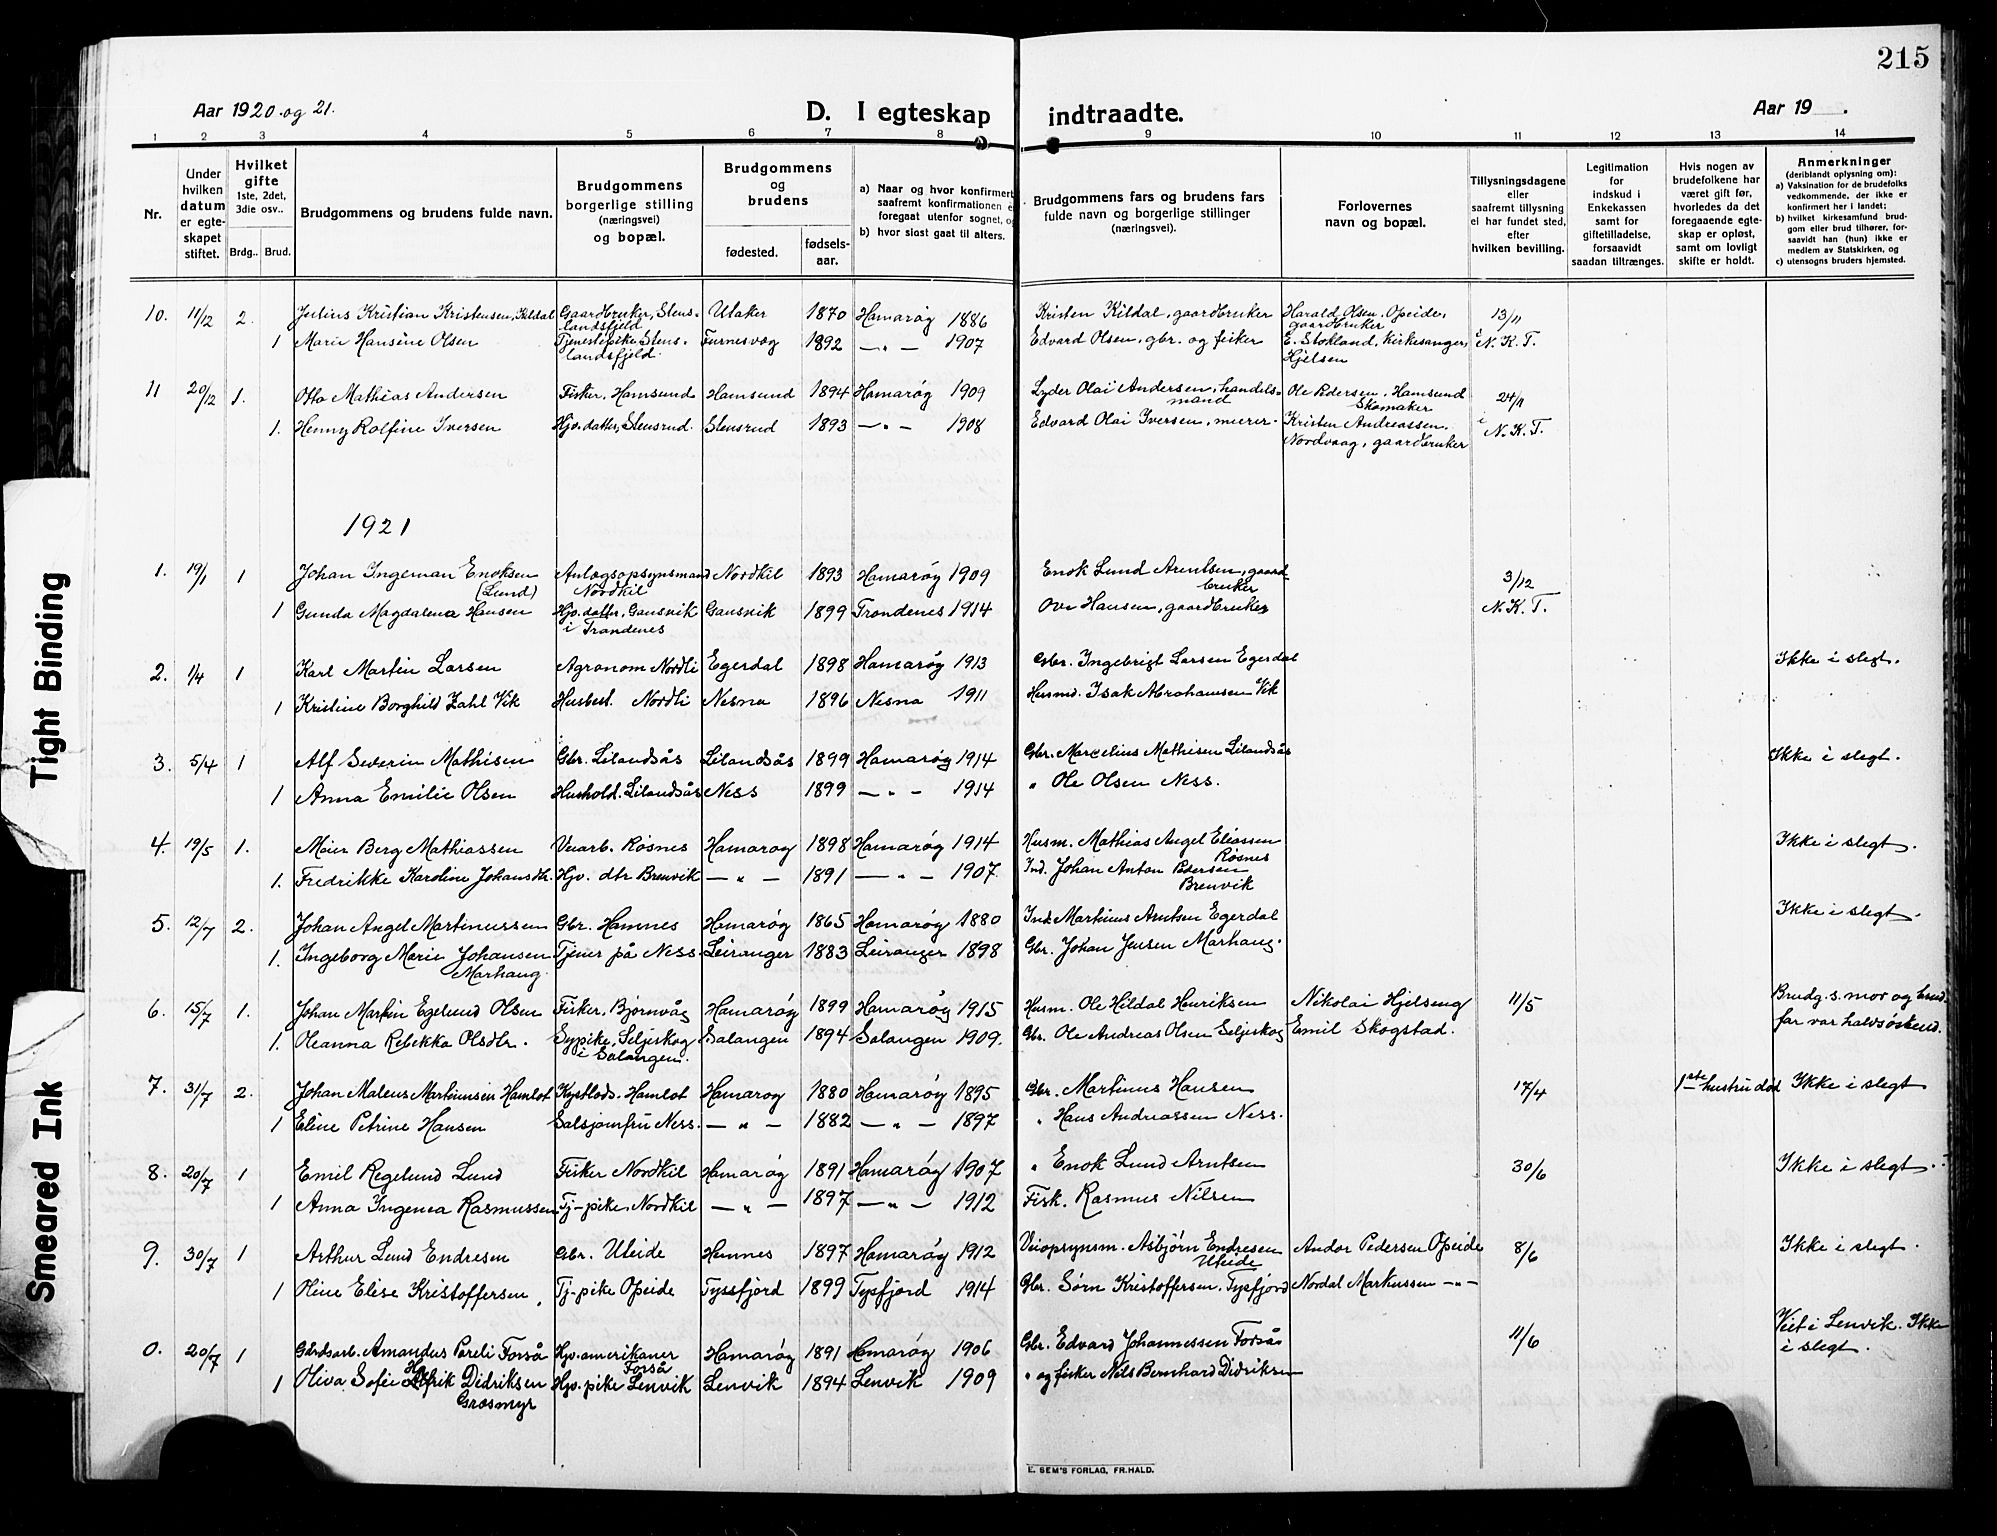 215
Aar 1920 og 21.
D. I egteskap indtraadte.
Aar 19 .
1 2 3 4 5 6 7 8 9 10 11 12 13 14
Nr.
Under hvilken datum er egteskapet stiftet.
Hvilket gifte 1ste, 2det, 3die osv..
Brdg.. Brud.
Brudgommens og brudens fulde navn.
Brudgommens borgerlige stilling (næringsvei) og bopæl.
Brudgommens og brudens
fødested.
fødsels-aar.
a) Naar og hvor konfirmert
saafremt konfirmationen e
foregaat utenfor sognet, og
b) hvor sidst gaat til alters.
Brudgommens fars og brudens fars
fulde navn og borgerlige stillinger
(næringsvei).
Forlovernes
navn og bopæl.
Tillysningsdagene
eller
saafremt tillysning
ei har fundet sted,
efter
hvilken bevilling.
Legitimation
for
indskud i
Enkekassen
samt for
giftetilladelse,
forsaavidt
saadan tiltrænges.
Hvis nogen av
brudefolkene har
været gift før,
hvorledes da det
foregaaende egte-
skap er opløst,
samt om lovligt
skifte er holdt.
Anmerkninger
(deriblandt oplysning om):
a) Vaksination for de brudefolks
vedkommende, der ikke er
konfirmert her i landet;
b) hvilket kirkesamfund brud-
gom eller brud tilhører, for-
saavidt han (hun) ikke er
medlem av Statskirken, og
c) utensogns bruders hjemsted.
10. 11/12 2. Julius Kristian Kristensen, Kildal Gaardbruker, Stens-landsfjeld Ulaker 1870 Hamarøy 1886 Kristen Kildal, gaardbruker Harald Olsen, Opeide, gaardbruker 13/11
1 Marie Hansine Olsen Tjenestepike, Stens-landsfjeld. Furnesvag 1892 — " — 1907 Edvard Olsen, gbr. og fisker E. Stokland, Kirkesanger, Hjelsen i N. K. T.
11 20/12 1. Otto Mathias Andersen Fisker, Hamsund Hamsund 1894 Hamarøy 1909 Lyder Olai Andersen, handels-mand Ole Pedersen, Hamsund Skomaker 24/11
1. Henny Rolfine Iversen Hjv. datter, Stensrud. Stensrud 1893 — " — 1908 Edvard Olai Iversen, murer. Kristen Andreassen. Nordvaag, gaardbruker i N. K. T.
1921
1. 19/1 1 Johan Ingeman Enoksen (Lund) Anlægsopsynsmand Nordkil Nordkil 1893 Hamarøy 1909 Enok Lund Arntsen, gaard-bruker 3/12
1 Gunda Magdalena Hansen Hjv. dattr. Gausvik i Trondenes Gausvik 1899 Trondenes 1914 Ove Hansen, gaardbruker N. K. T.
2. 1/4 1 Karl Martin Larsen Agronom Nordli Egerdal 1898 Hamarøy 1913 Gbr. Ingebrigt Larsen Egerdal Ikke i slegt.
1 Kristine Borghild Zahl Vik Husbest. Nordli Nesna 1896 Nesna 1911 Husmd. Isak Abrahamsen Vik
3. 5/4 1 Alf Severin Mathisen Gbr. Lilandsås Lilandsås 1899 Hamarøy 1914 Gbr. Marcelius Mathisen Lilandsås Ikke i slegt.
1 Anna Emilie Olsen Hushold. Lilandsås Ness 1899 — " — 1914 " Ole Olsen Ness.
4. 19/5 1. Meier Berg Mathiassen Veiarb. Røsnes Hamarøy 1898 Hamarøy 1914 Husm. Mathias Angel Eliassen Røsnes Ikke i slegt.
1. Fredrikke Karoline Johansdtr. Hjv. dtr Brenvik — " — 1891 — " — 1907 Ind. Johan Anton Pedersen Brenvik
5. 12/7 2. Johan Angel Martinussen Gbr. Hamnes Hamarøy 1865 Hamarøy 1880 Ind. Martinus Arntsen Egerdal Ikke i slegt.
1. Ingeborg Marie Johansen Marhaug. Tjener på Ness. Leiranger 1883 Leiranger 1898 Gbr. Johan Jensen Marhaug.
6. 15/7 1. Johan Martin Egelund Olsen Fisker, Bjørnvåg Hamarøy 1899 Hamarøy 1915 Husm. Ole Hildal Henriksen Nikolai Hjelseng 11/5 Brudg.s. mor og brud. far var halvsøskend.
1. Oleanna Rebekka Olsdtr. Sypike, Seljeskog i Salangen. Salangen 1894 Salangen 1909. Gbr. Ole Andreas Olsen Seljeskog Emil Skogstad.
7. 31/7 2. Johan Mateus Martinusen Hamlot Kystlods. Hamlot Hamarøy 1880 Hamarøy 1895 Gbr. Martinus Hansen 17/4 1ste hustru død Ikke i slegt
1 Eline Petrine Hansen Salsjomfru Ness. — " — 1882 — " — 1897 " Hans Andreassen Ness.
8. 20/7 1 Emil Regelund Lund Fisker Nordkil Hamarøy 1891 Hamarøy 1907 " Enok Lund Arntsen 30/6 Ikke i slegt.
1 Anna Ingenea Rasmussen Tj-pike, Nordkil — " — 1897 — " — 1912 Fisk. Rasmus Nilsen
9. 30/7 1 Arthur Lund Endresen Gbr. Uleide Hamnes 1897 Hamarøy 1912 Veiopsynsm. Asbjørn Endresen Uleide Andor Pedersen Opeide 8/6 Ikke i slegt.
1 Oline Elise Kristoffersen Tj-pike Opeide Tyssfjord 1899 Tysfjord 1914 Gbr. Sørn Kristoffersen, Tysfjord Nordal Markussen — " —
0. 20/7 1 Gårdsarb. Amandus Pareli Forså Hjv. amerikaner Forså Hamarøy 1891 Hamarøy 1906 Gbr. Edvard Johannessen Forså 11/6 Viet i Lenvik. Ikke i slegt.
1 Oliva Sofie Didriksen Grasmyr Hjv. pike Lenvik Lenvik 1894 Lenvik 1909 " og fisker Nils Bernhard Didriksen
E. SEM'S FORLAG, FR.HALD.
Tight Binding
Smeared Ink